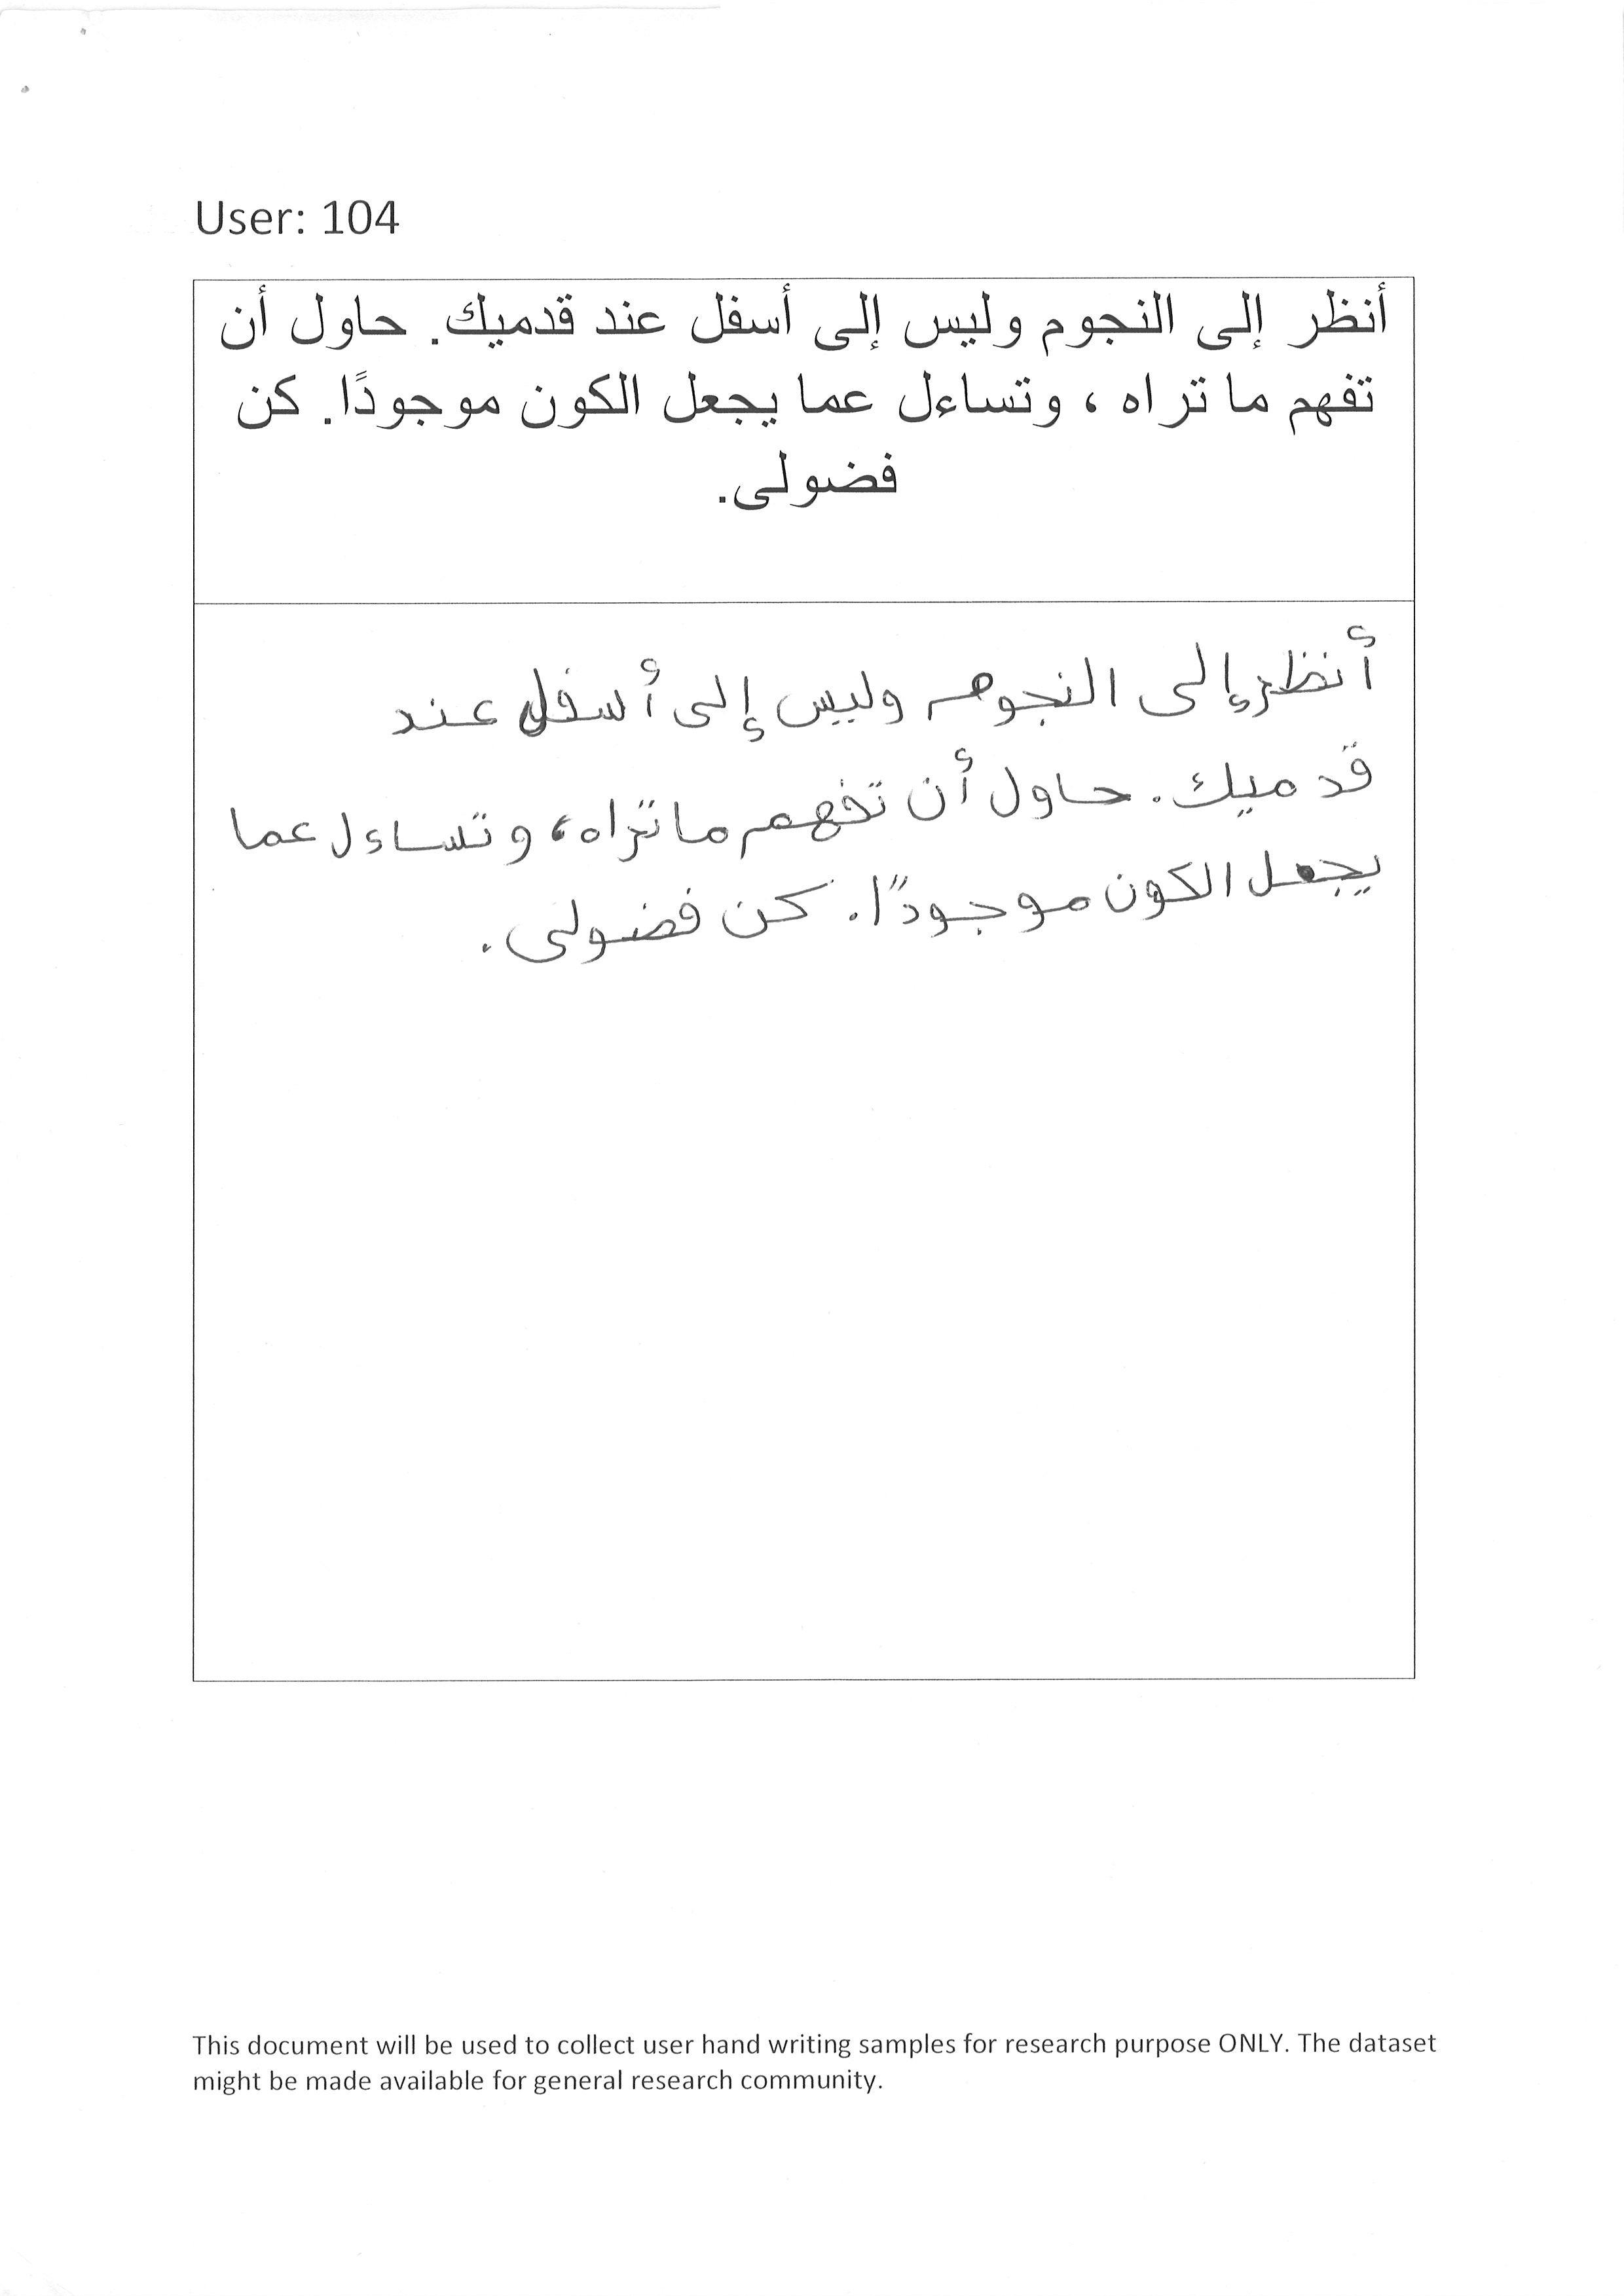 User: 104
أنظر إلى النجوم وليس إلى أسفل عند قدميك. حاول أن
تفهم ما تراه ، وتساءل عما يجعل الكون موجودًا. كن
فضولى.
أنظر إلى النجوم وليس إلى أسفل عند
قدميك. حاول أن تفهم ما تراه، وتساءل عما
يجعل الكون موجودًا. كن فضولى.
This document will be used to collect user hand writing samples for research purpose ONLY. The dataset
might be made available for general research community.